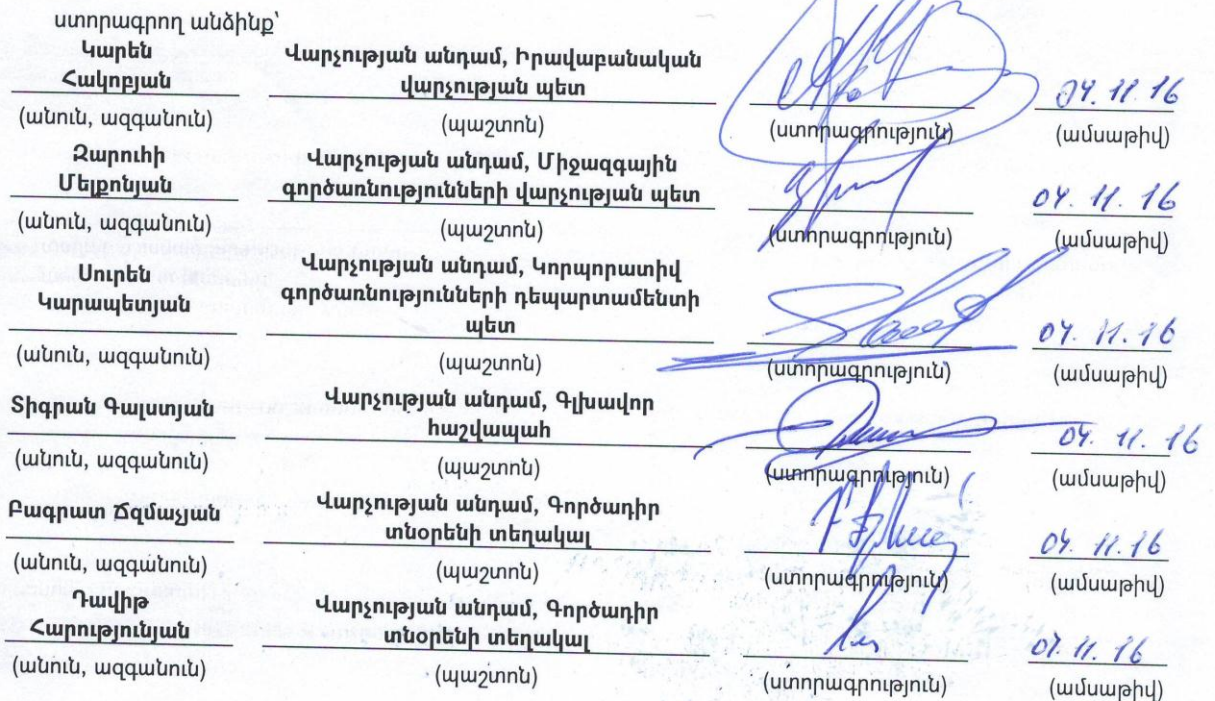 ստորագրող անձինք՝
Կարեն Վարչության անդամ, Իրավաբանական
Հակոբյան վարչության պետ 04. 11. 16
(անուն, ազգանուն) (պաշտոն) (ստորագրություն) (ամսաթիվ)
Զարուհի Վարչության անդամ, Միջազգային
Մելքոնյան գործառնությունների վարչության պետ 04. 11. 16
(անուն, ազգանուն) (պաշտոն) (ստորագրություն) (ամսաթիվ)
Սուրեն Վարչության անդամ, Կորպորատիվ
Կարապետյան գործառնությունների դեպարտամենտի
պետ 04. 11. 16
(անուն, ազգանուն) (պաշտոն) (ստորագրություն) (ամսաթիվ)
Տիգրան Գալստյան Վարչության անդամ, Գլխավոր
հաշվապահ 04. 11. 16
(անուն, ազգանուն) (պաշտոն) (ստորագրություն) (ամսաթիվ)
Բագրատ Ճզմաչյան Վարչության անդամ, Գործադիր
տնօրենի տեղակալ 04. 11. 16
(անուն, ազգանուն) (պաշտոն) (ստորագրություն) (ամսաթիվ)
Դավիթ Վարչության անդամ, Գործադիր
Հարությունյան տնօրենի տեղակալ 04. 11. 16
(անուն, ազգանուն) (պաշտոն) (ստորագրություն) (ամսաթիվ)